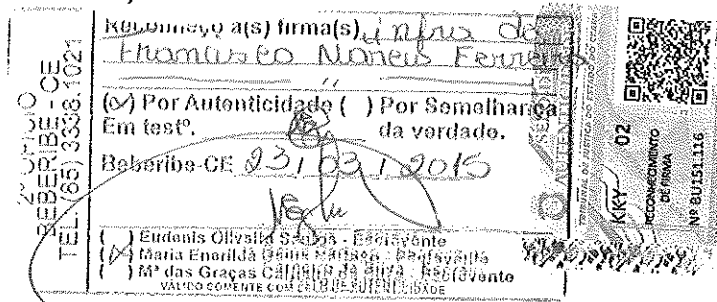 2º OFÍCIO
BEBERIBE - CE
TEL. (85) 3338.1021
Reconheço a(s) firma(s) infra de
Francisco Nareus Ferreira
(x) Por Autenticidade ( ) Por Semelhança
Em testº. da verdade.
Beberibe-CE 23 / 03 / 2015
( ) Eudenis Oliveira Santos - Escrevente
(x) Maria Enerilda
( ) Mª das Graças - Escrevente
VÁLIDO SOMENTE COM SELO DE AUTENTICIDADE
TRIBUNAL DE JUSTIÇA DO ESTADO DO CEARÁ
KKY 02
RECONHECIMENTO
DE FIRMA
Nº BU151.116